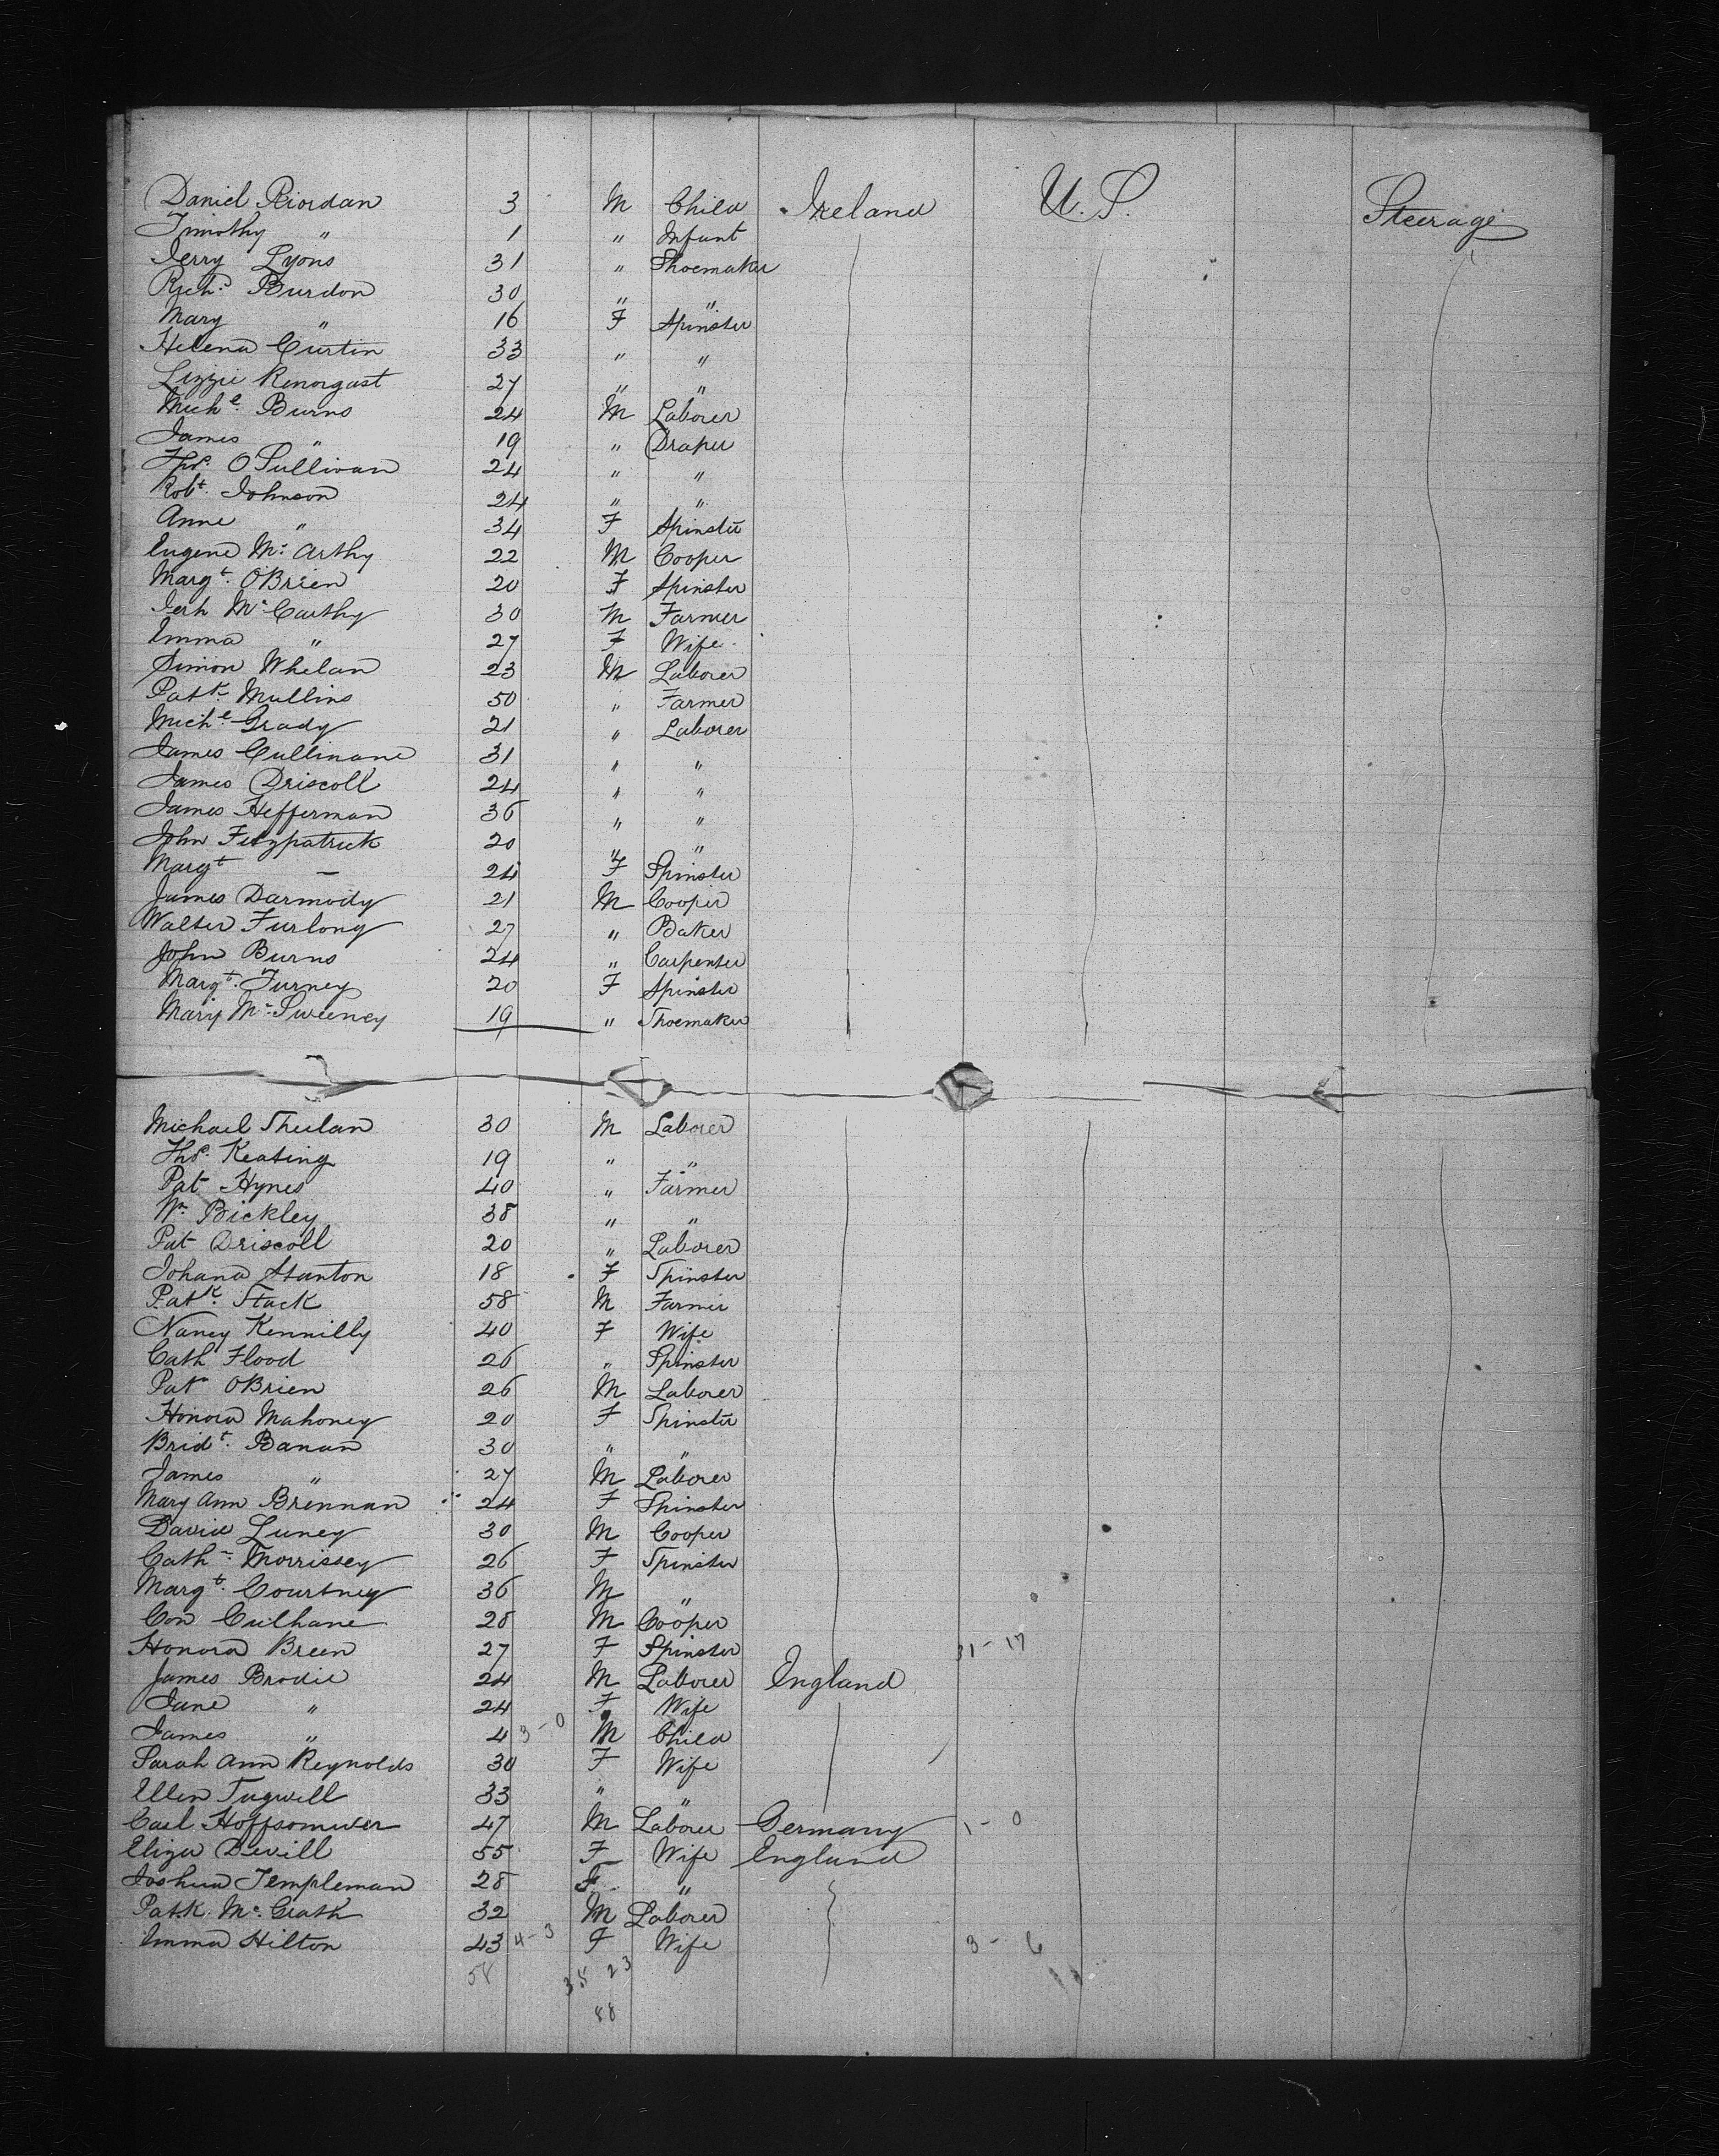 Daniel Riordan 3 M Child Ireland U.S. Steerage
Timothy " 1 " Infant
Jerry Lyons 31 " Shoemaker
Richd. Burdon 30 " "
Mary " 16 F Spinster
Helena Curtin 33 " "
Lizzie 27 " "
Michl. Burns 24 M Laborer
James " 19 " Draper
Ths. O'Sullivan 24 " "
Robt. Johnson 24 " "
Anne " 34 F Spinster
Eugene Mc. Arthy 22 M Cooper
Margt. O'Brien 20 F Spinster
Jerh Mc. Carthy 30 M Farmer
Emma " 27 F Wife
Simon Whelan 23 M Laborer
Patk. Mullins 50 " Farmer
Michl. Grady 21 " Laborer
James Cullinane 31 " "
James Driscoll 24 " "
James Hefferman 36 " "
John Fitzpatrick 20 " "
Margt — 24 F Spinster
James Darmody 21 M Cooper
Walter Furlong 27 " Baker
John Burns 24 " Carpenter
Margt. Turney 20 F Spinster
Mary Mc. Sweeney 19 " Shoemaker
Michael 30 M Laborer
Ths. Keating 19 " "
Pat Hynes 40 " Farmer
Wm. Bickley 38 " "
Pat Driscoll 20 " Laborer
Johana Stanton 18 F Spinster
Patk. Stack 58 M Farmer
Nancy Kennilly 40 F Wife
Cath Flood 26 " Spinster
Pat O'Brien 26 M Laborer
Honora Mahoney 20 F Spinster
Bridt. Banan 30 " "
James " 27 M Laborer
Mary Ann Brennan 24 F Spinster
David Luney 30 M Cooper
Cath. Morrissey 26 F Spinster
Margt. Courtney 36 M "
Con Culhane 28 M Cooper
Honora Breen 27 F Spinster 31-17
James Brodie 24 M Laborer England
Jane " 24 F Wife
James " 4 3-0 M Child
Sarah Ann Reynolds 30 F Wife
Ellen Tugwell 33 " "
Carl 47 M Laborer Germany 1-0
Eliza Devill 55 F Wife England
Joshua Templeman 28 F "
Patk. Mc. Grath 32 M Laborer
Emma Hilton 43 4-3 F Wife 3-6
58 35 23
88